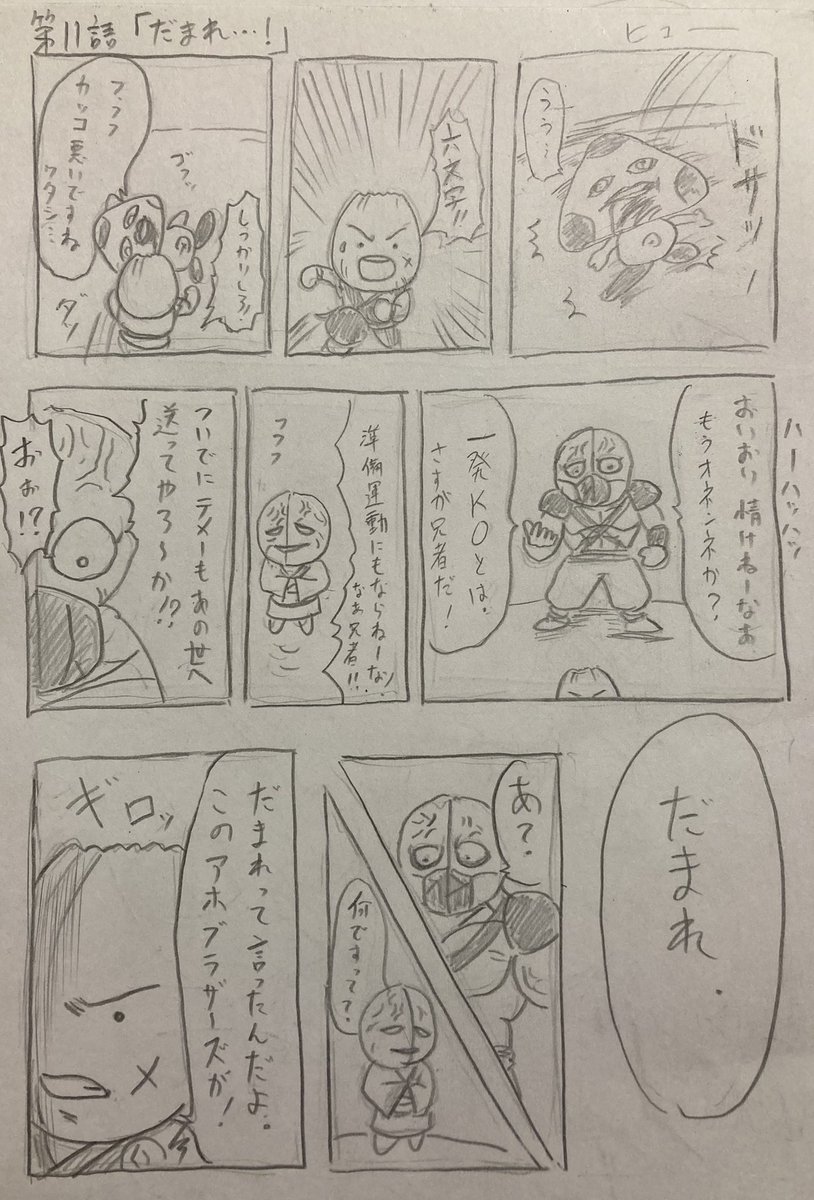 第11話「だまれ…!」
ヒュー
ドサッ
うう…
六文字!!
しっかりしろ!
ゴフッ
フフフ
カッコ悪いですね
ワタシ…
ダッ
ハーハッハッ
おいおい情けねーなあ
もうオネンネか?
一発KOとは。
さすが兄者だ!
準備運動にもならねーな
なあ兄者!!
フフフ
ついでにテメーもあの世へ
送ってやろ〜か!?
おお!?
だまれ.
あ?.
何ですって?
だまれって言ったんだよ。
このアホブラザーズが!
ギロッ